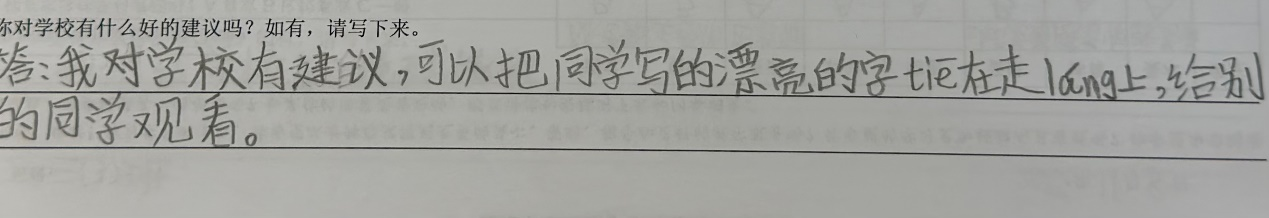 你对学校有什么好的建议吗？如有，请写下来。
答：我对学校有建议，可以把同学写的漂亮的字tiē在走láng上，给别
的同学观看。